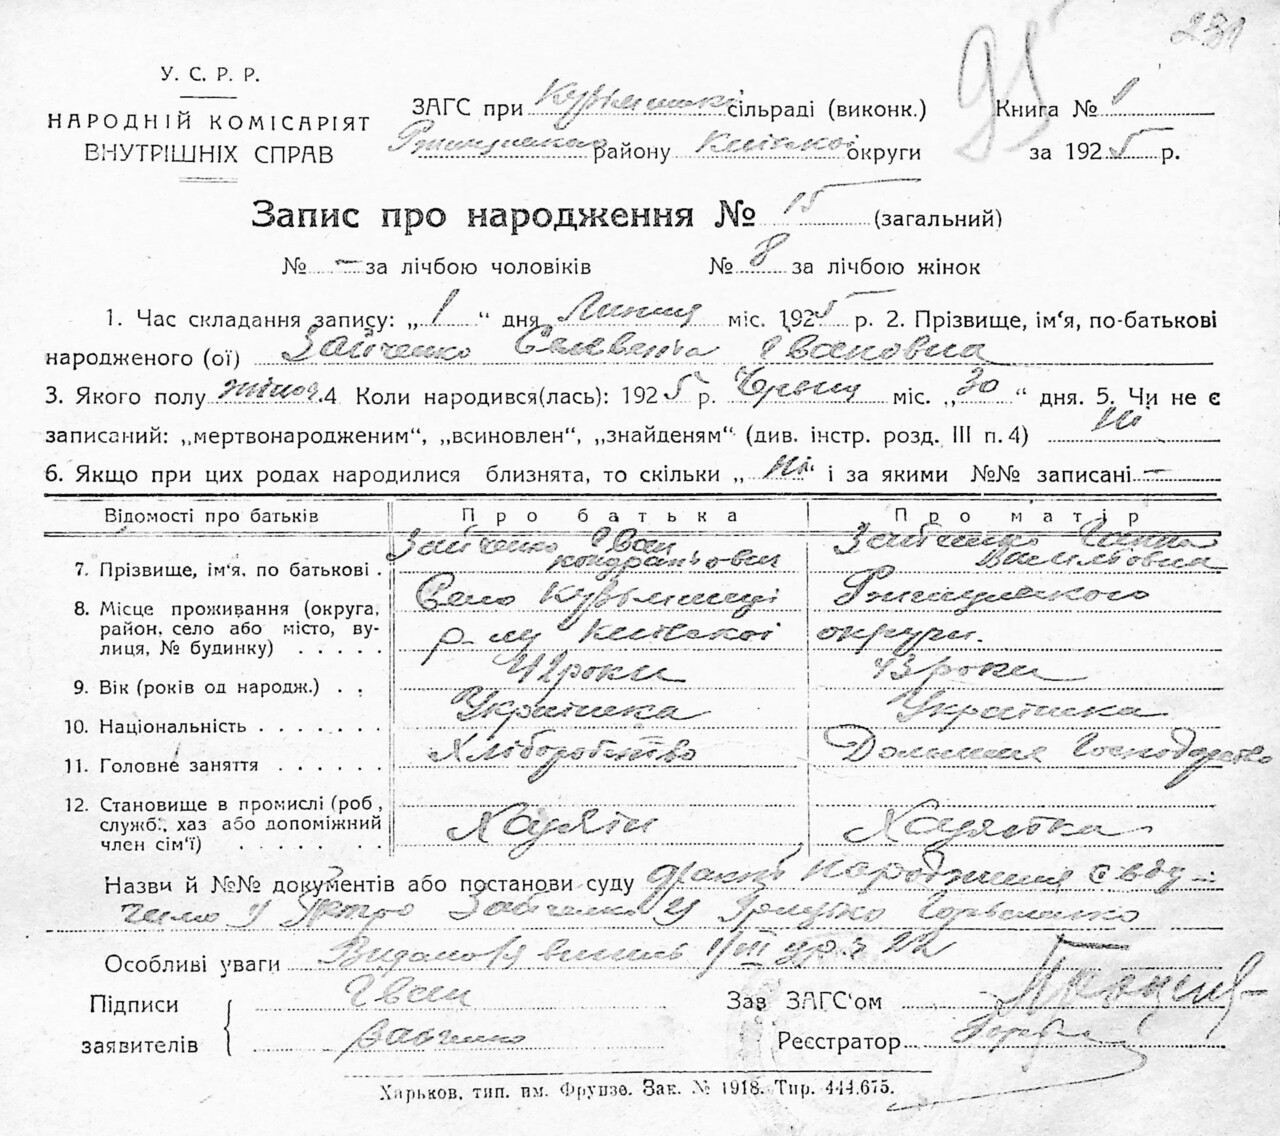 231
95
У. С. Р. Р.
НАРОДНІЙ КОМІСАРІЯТ
ВНУТРІШНІХ СПРАВ
ЗАГС при сільраді (виконк.)
району Київскої округи
Книга № 1
за 1925 р.
Запис про народження № 15 (загальний)
№ — за лічбою чоловіків № 8 за лічбою жінок
1. Час складання запису: „1“ дня Липня міс. 1925 р. 2. Прізвище, ім'я, по-батькові
народженого (ої) Зайченко Івановна
3. Якого полу жіноч. 4 Коли народився(лась): 1925 р. Червня міс. „30“ дня. 5. Чи не є
записаний: „мертвонародженим“, „всиновлен“, „знайденям“ (див. інстр. розд. III п. 4) Ні
6. Якщо при цих родах народилися близнята, то скільки „Ні“ і за якими №№ записані —
Відомості про батьків Про батька Про матір
7. Прізвище, ім'я, по батькові . Зайченко Іван Кондратьович Зайченко Ганна Васильовна
8. Місце проживання (округа, Село Кузьминці
район, село або місто, ву- р-ну Київскої округи.
лиця, № будинку) . . . . .
9. Вік (років од народж.) . . 42 роки 43 роки
10. Національність . . . . . . . Українка Українка
11. Головне заняття . . . . . . Хліборобство Домашнє Господарство
12. Становище в промислі (роб, 
служб., хаз або допоміжний Хазяїн Хазяйка
член сім'ї) . . . . . . .
Назви й №№ документів або постанови суду факт народження
Петро Зайченко
Особливі уваги
Підписи Іван
заявителів Зайченко
Зав ЗАГС'ом
Реєстратор
Харьков, тип. им. Фрунзе. Зак. № 1918. Тир. 444.675.